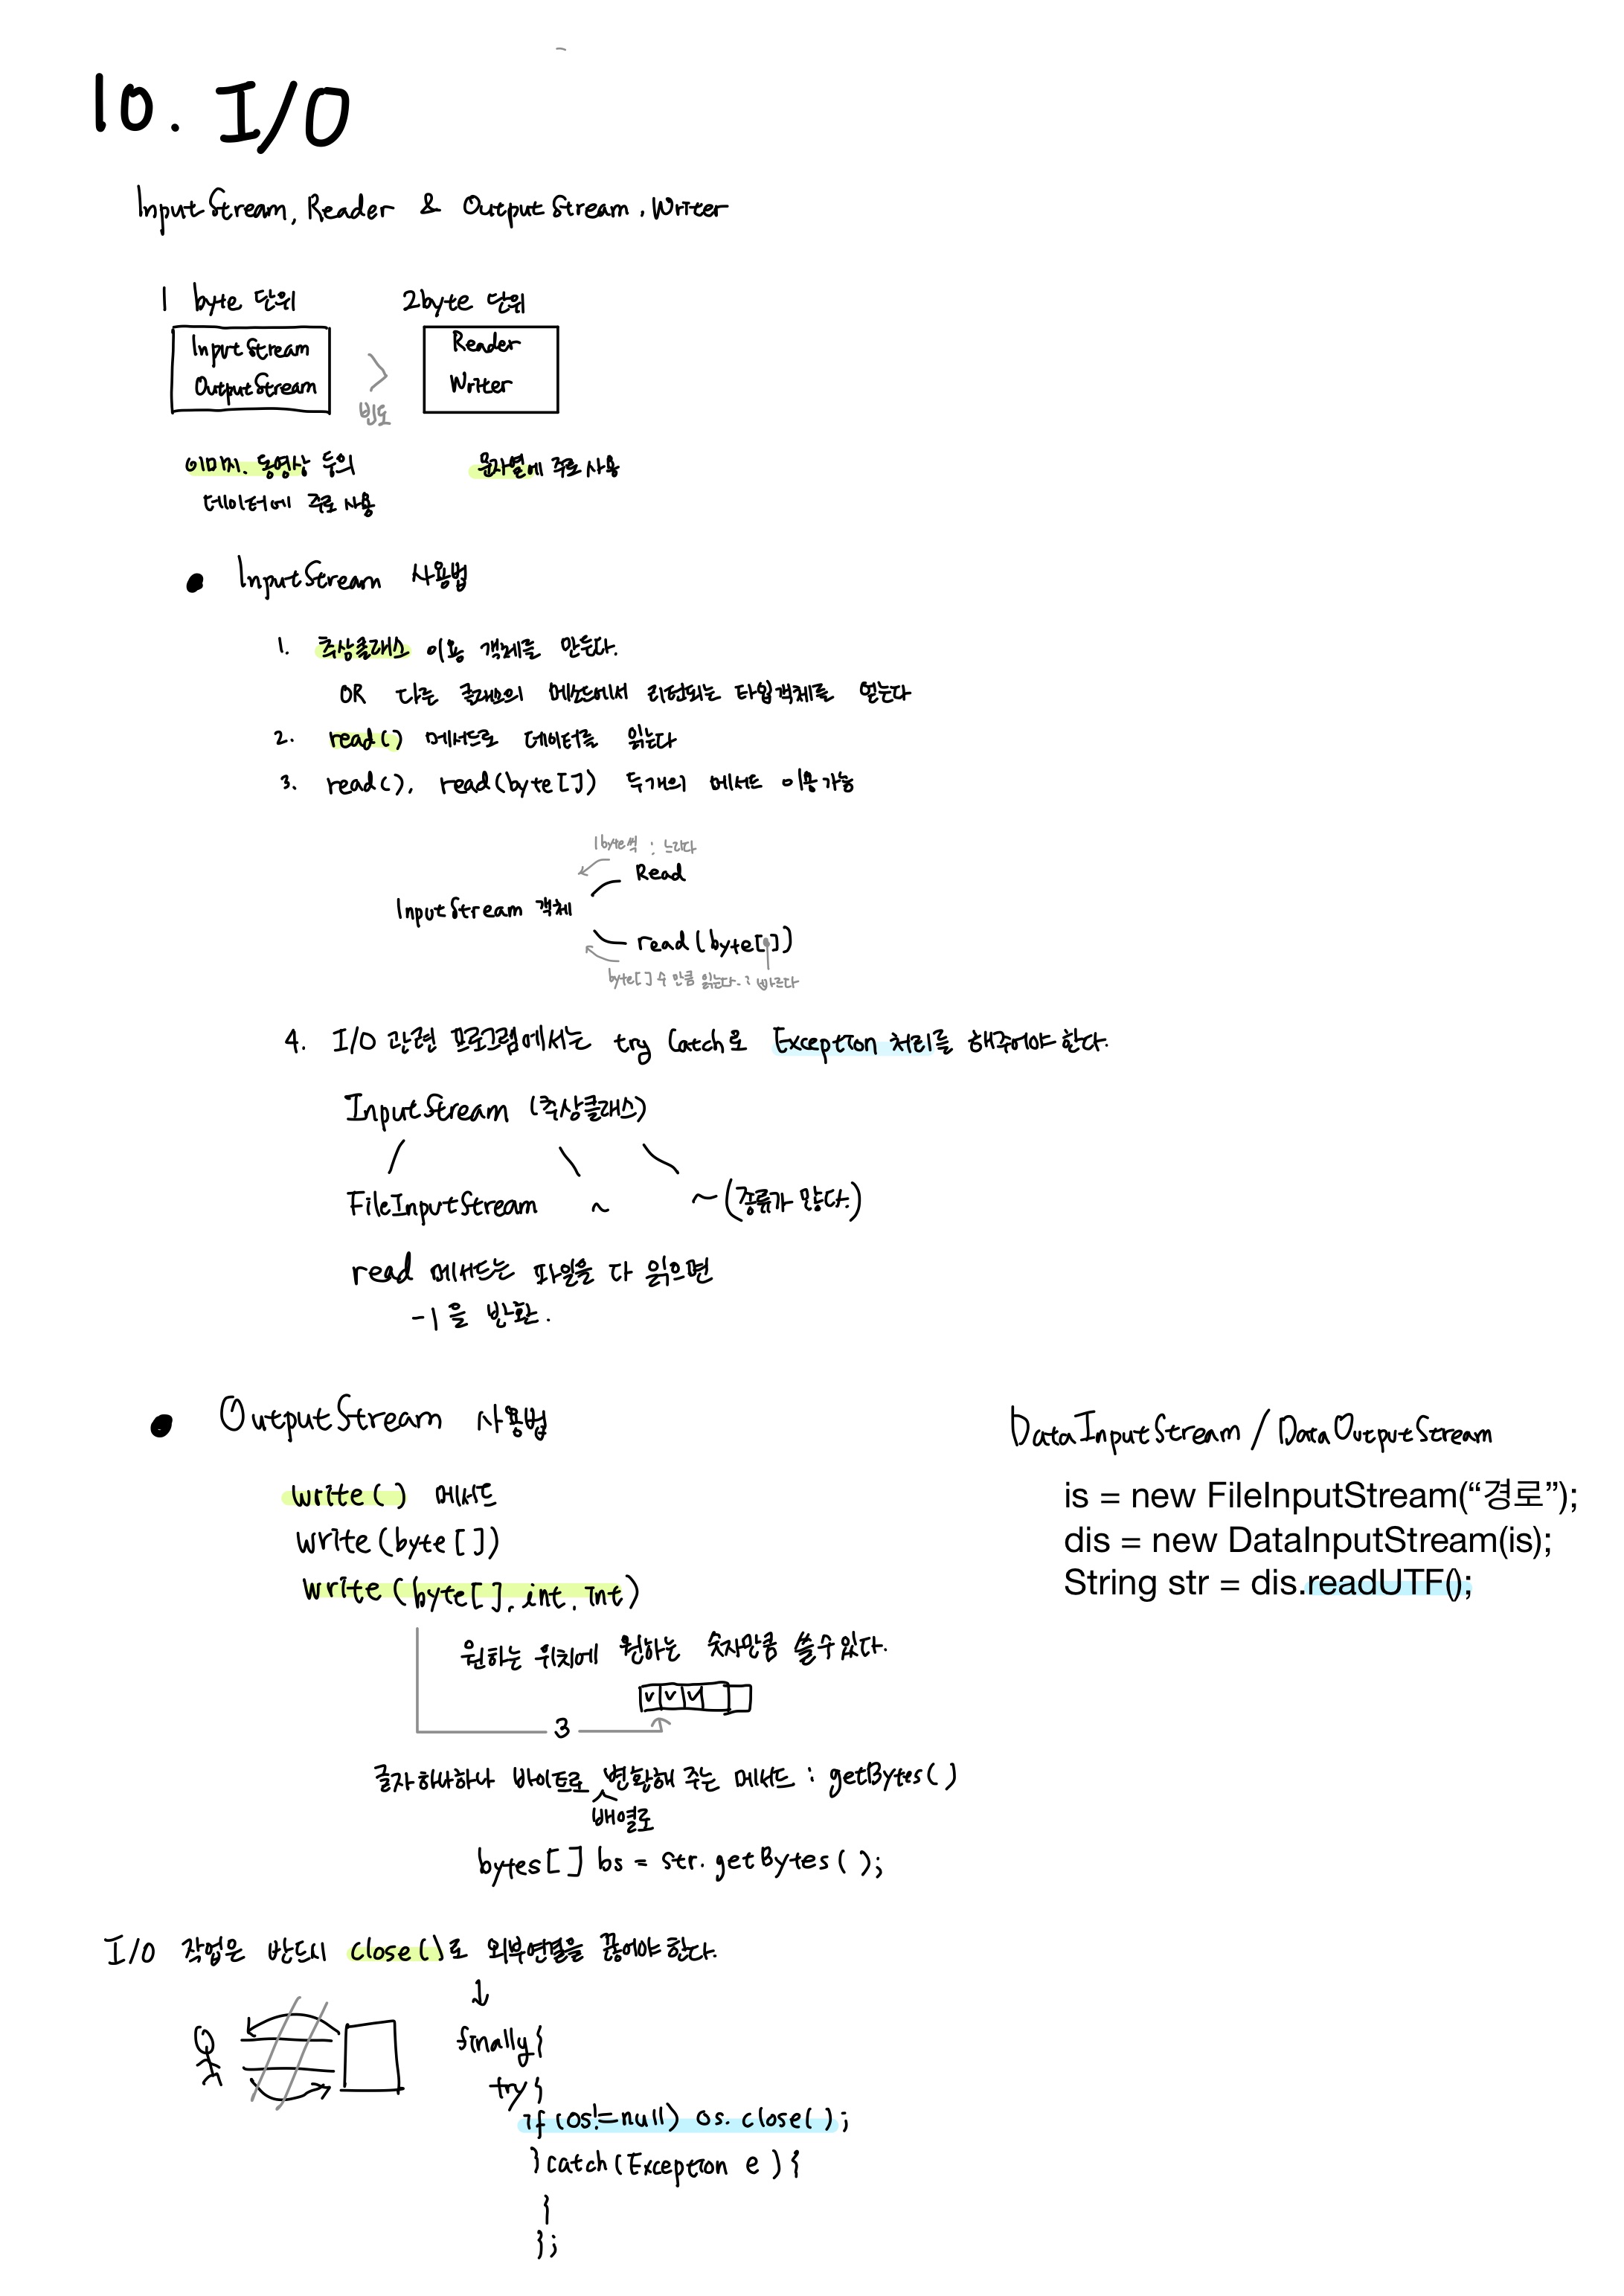 10. I/O
InputStream, Reader & OutputStream, Writer
1 byte 단위
2byte 단위
InputStream
OutputStream
>
빈도
Reader
Writer
이미지, 동영상 등의
데이터에 주로 사용
문자열에 주로 사용
• InputStream 사용법
1. 추상클래스 이용 객체를 만든다.
OR 다른 클래스의 메소드에서 리턴되는 타입객체를 얻는다
2. read() 메서드로 데이터를 읽는다
3. read(), read(byte[]) 두개의 메서드 이용가능
1byte씩 : 느리다
Read
InputStream 객체
read(byte[])
byte[] 수 만큼 읽는다. : 빠르다
4. I/O 관련 프로그램에서는 try Catch로 Exception 처리를 해주어야 한다.
InputStream (추상클래스)
FileInputStream ~ ~(종류가 많다.)
read 메서드는 파일을 다 읽으면
-1을 반환.
• OutputStream 사용법
write() 메서드
write(byte[])
write(byte[], int, int)
원하는 위치에 원하는 숫자만큼 쓸수있다.
3
글자하나하나 바이트로 변황해 주는 메서드 : getBytes()
배열로
bytes[] bs = str.getBytes();
DataInputStream / DataOutputStream
is = new FileInputStream(“경로”);
dis = new DataInputStream(is);
String str = dis.readUTF();
I/O 작업은 반드시 close()로 외부연결을 끊어야 한다.
↓
finally{
try{
if(os!=null) os.close();
}catch(Exception e){
}
};